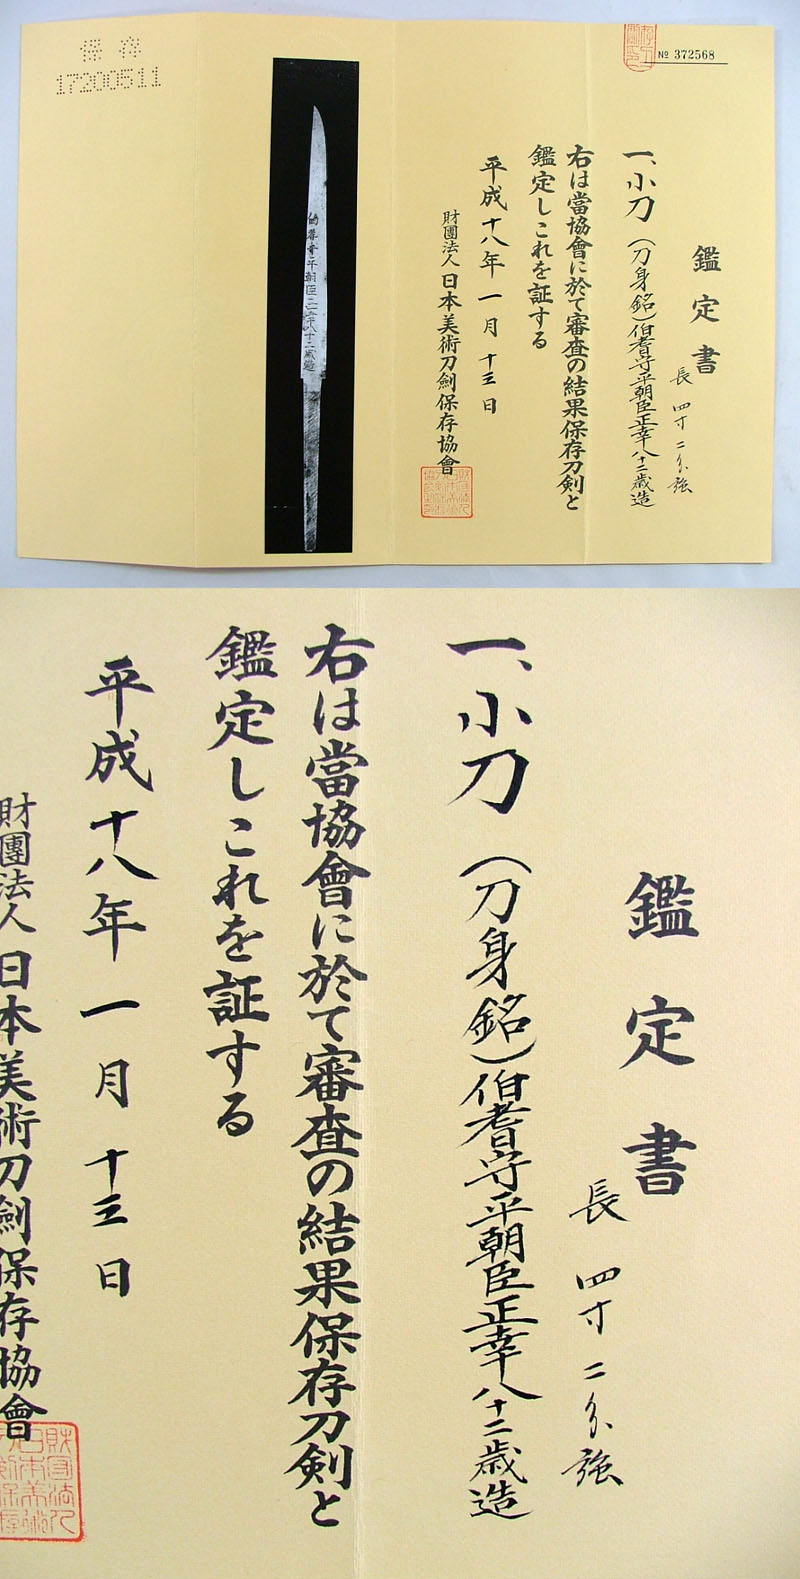 保存
17200511
№ 372568
鑑定書
長 四寸二分強
一、小刀(刀身銘)伯耆守平朝臣正幸八十二歳造
右は當協會に於て審査の結果保存刀剣と
鑑定しこれを証する
平成十八年一月十三日
財團法人日本美術刀劍保存協會
鑑定書
長 四寸二分強
一、小刀(刀身銘)伯耆守平朝臣正幸八十二歳造
右は當協會に於て審査の結果保存刀剣と
鑑定しこれを証する
平成十八年一月十三日
財團法人日本美術刀劍保存協會